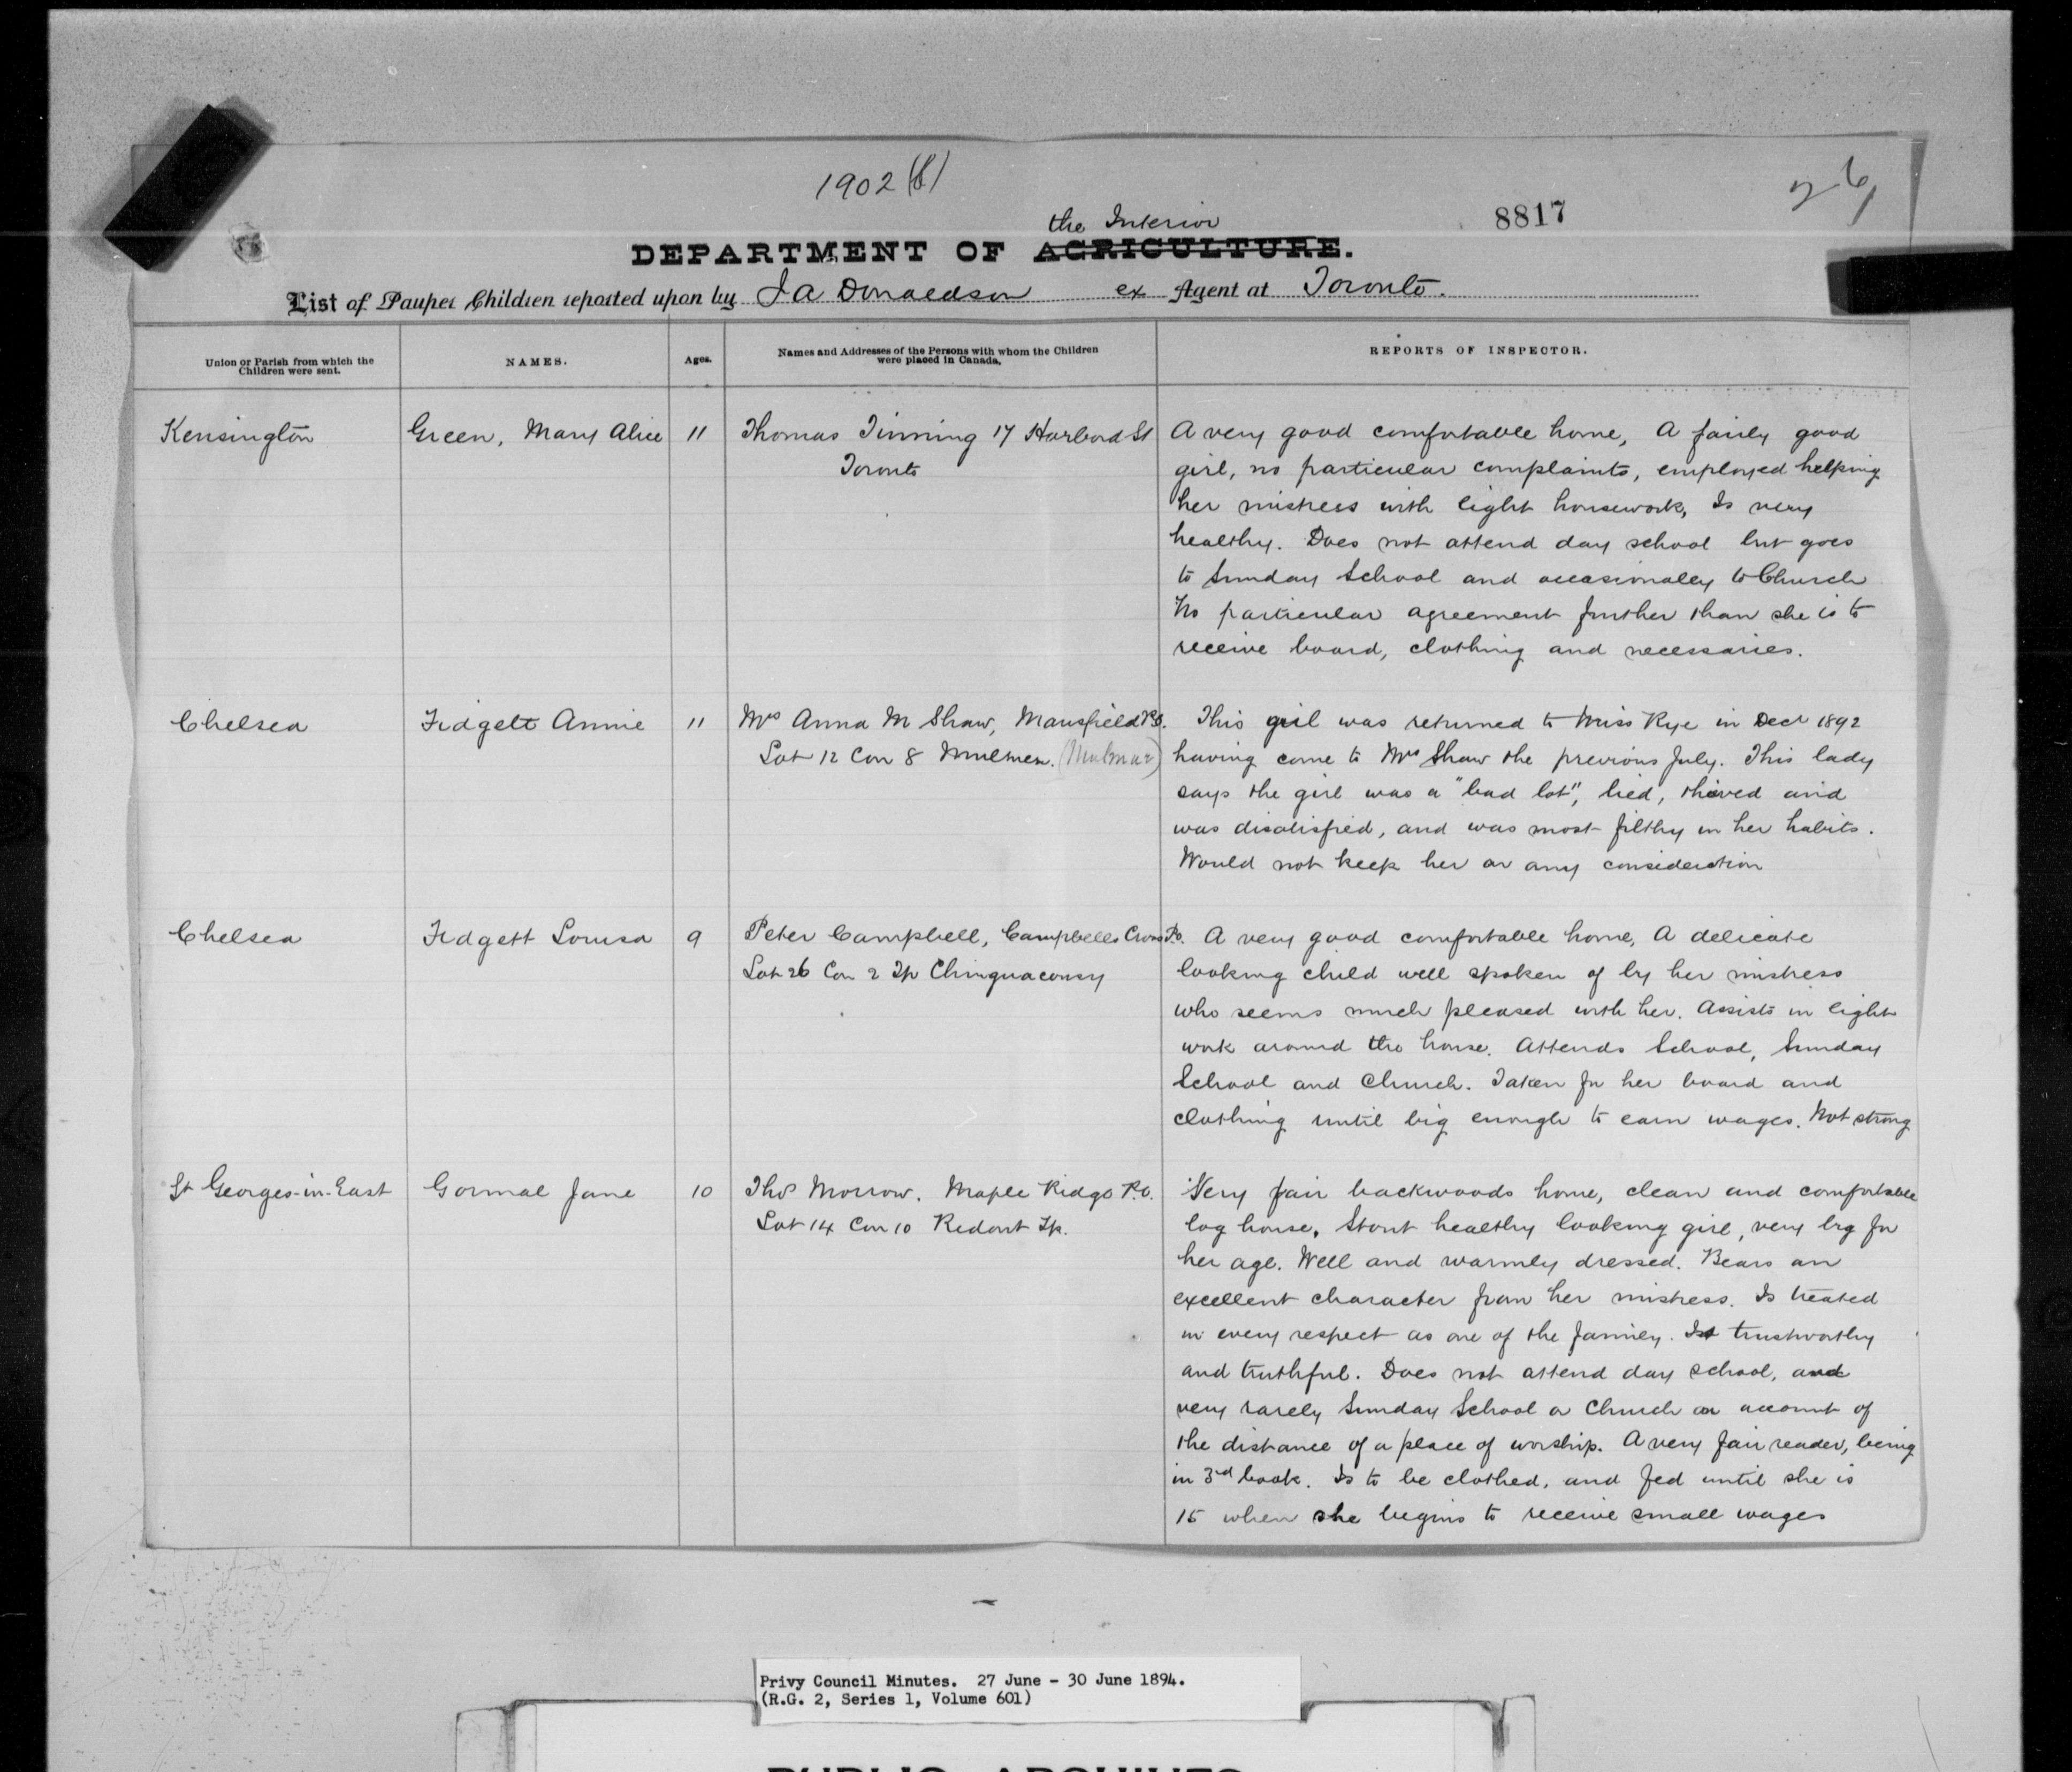 1902 (8)
26
8817
the Interior
DEPARTMENT OF AGRICULTURE.
List of Pauper Children reported upon by J A Donaldson ex Agent at Toronto.
Union or Parish from which the Children were sent.
NAMES.
Ages.
Names and Addresses of the Persons with whom the Children were placed in Canada.
REPORTS OF INSPECTOR.
Kensington
Green, Mary Alice
11
Thomas Tinning 17 Harbord St
Toronto
A very good comfortable home, A fairly good
girl, no particular complaints, employed helping
her mistress with light housework, Is very
healthy. Does not attend day school but goes
to Sunday School and occasionally to Church
No particular agreement further than she is to
receive board, clothing and necessaries.
Chelsea
Fidgett Annie
11
Mrs Anna M Shaw, Mansfield P.O.
Lot 12 Con 8 Mulmen. (Mulmur)
This girl was returned to Miss Rye in Decr 1892
having come to Mrs Shaw the previous July. This lady
says the girl was a "bad lot", lied, thieved and
was disatisfied, and was most filthy in her habits.
Would not keep her on any consideration
Chelsea
Fidgett Louisa
9
Peter Campbell, Campbells Cross P.O.
Lot 26 Con 2 Tp Chinguacousy
A very good comfortable home, A delicate
looking child well spoken of by her mistress
who seems much pleased with her. Assists in light
work around the house. Attends School, Sunday
School and Church. Taken for her board and
clothing until big enough to earn wages. Not strong
St Georges-in-East
Gormal Jane
10
Thos Morrow. Maple Ridge P.O.
Lot 14 Con 10 Ridout Tp.
Very fair backwoods home, clean and comfortable
log house. Stout healthy looking girl, very big for
her age. Well and warmly dressed. Bears an
excellent character from her mistress. Is treated
in every respect as one of the family. Is trustworthy
and truthful. Does not attend day school, and
very rarely Sunday School or Church on account of
the distance of a place of worship. A very fair reader, being
in 3rd book. Is to be clothed, and fed until she is
15 when she begins to receive small wages
Privy Council Minutes. 27 June - 30 June 1894.
(R.G. 2, Series 1, Volume 601)
PUBLIC ARCHIVES